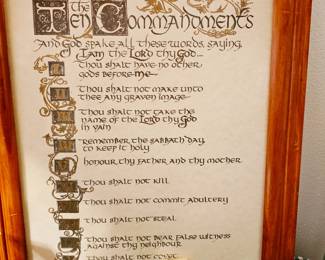 the
Ten Commandments
And God spake all these words, saying,
I am the Lord thy God...
Thou shalt have no other
gods before me
Thou shalt not make unto
thee any graven image
Thou shalt not take the
name of the Lord thy God
in vain
Remember the sabbath day,
to keep it holy
honour thy father and thy mother
Thou shalt not kill
Thou shalt not commit adultery
Thou shalt not steal
Thou shalt not bear false witness
against thy neighbour
Thou shalt not covet